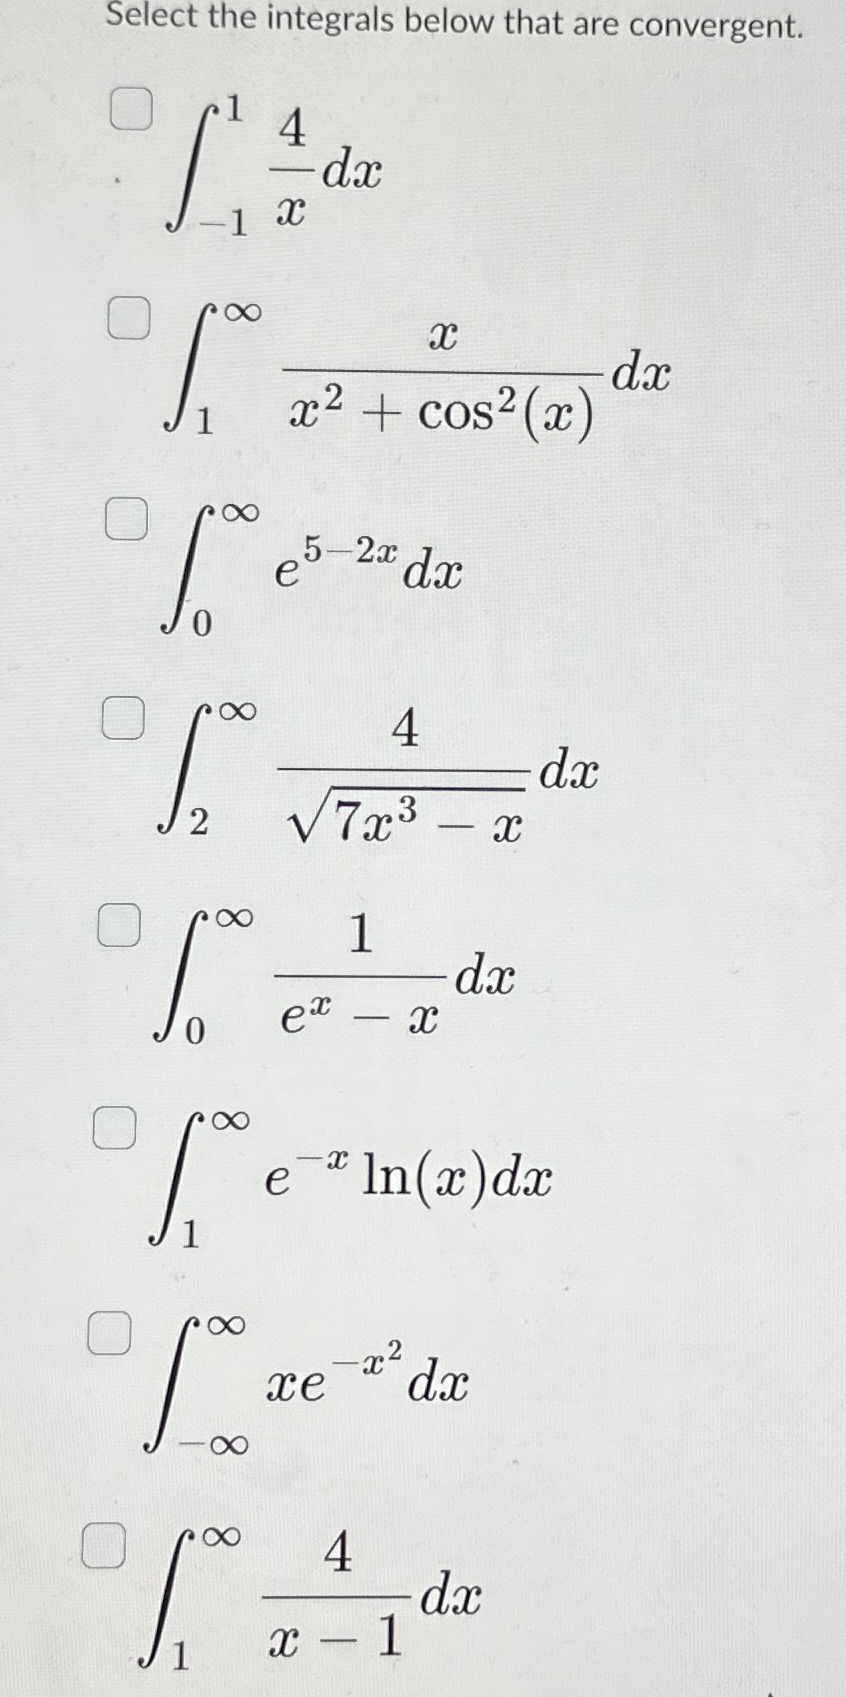 Select the integrals below that are convergent.
∫_{-1}^{1} \frac{4}{x} dx
∫_{1}^{∞} \frac{x}{x^2 + cos^2(x)} dx
∫_{0}^{∞} e^{5-2x} dx
∫_{2}^{∞} \frac{4}{\sqrt{7x^3 - x}} dx
∫_{0}^{∞} \frac{1}{e^x - x} dx
∫_{1}^{∞} e^{-x} ln(x) dx
∫_{-∞}^{∞} xe^{-x^2} dx
∫_{1}^{∞} \frac{4}{x - 1} dx